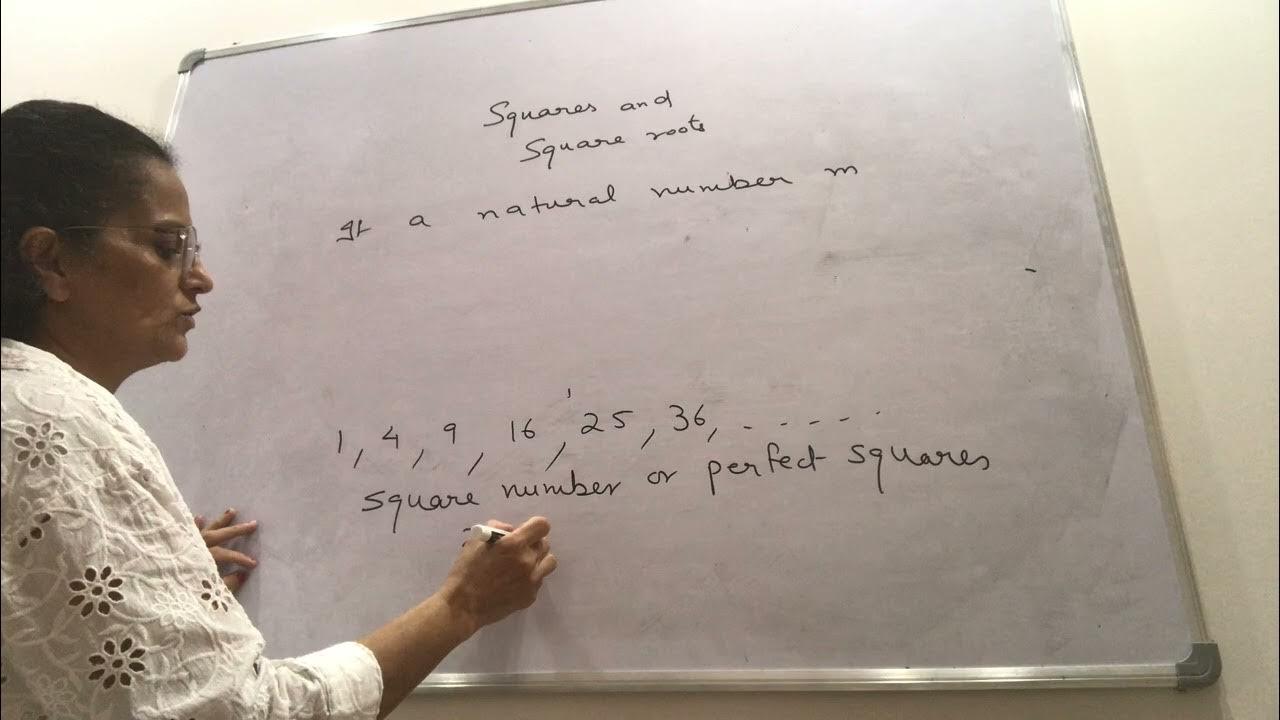 Squares and
Square roots
If a natural number m
1, 4, 9, 16, 25, 36, - - - - -
square number or perfect squares